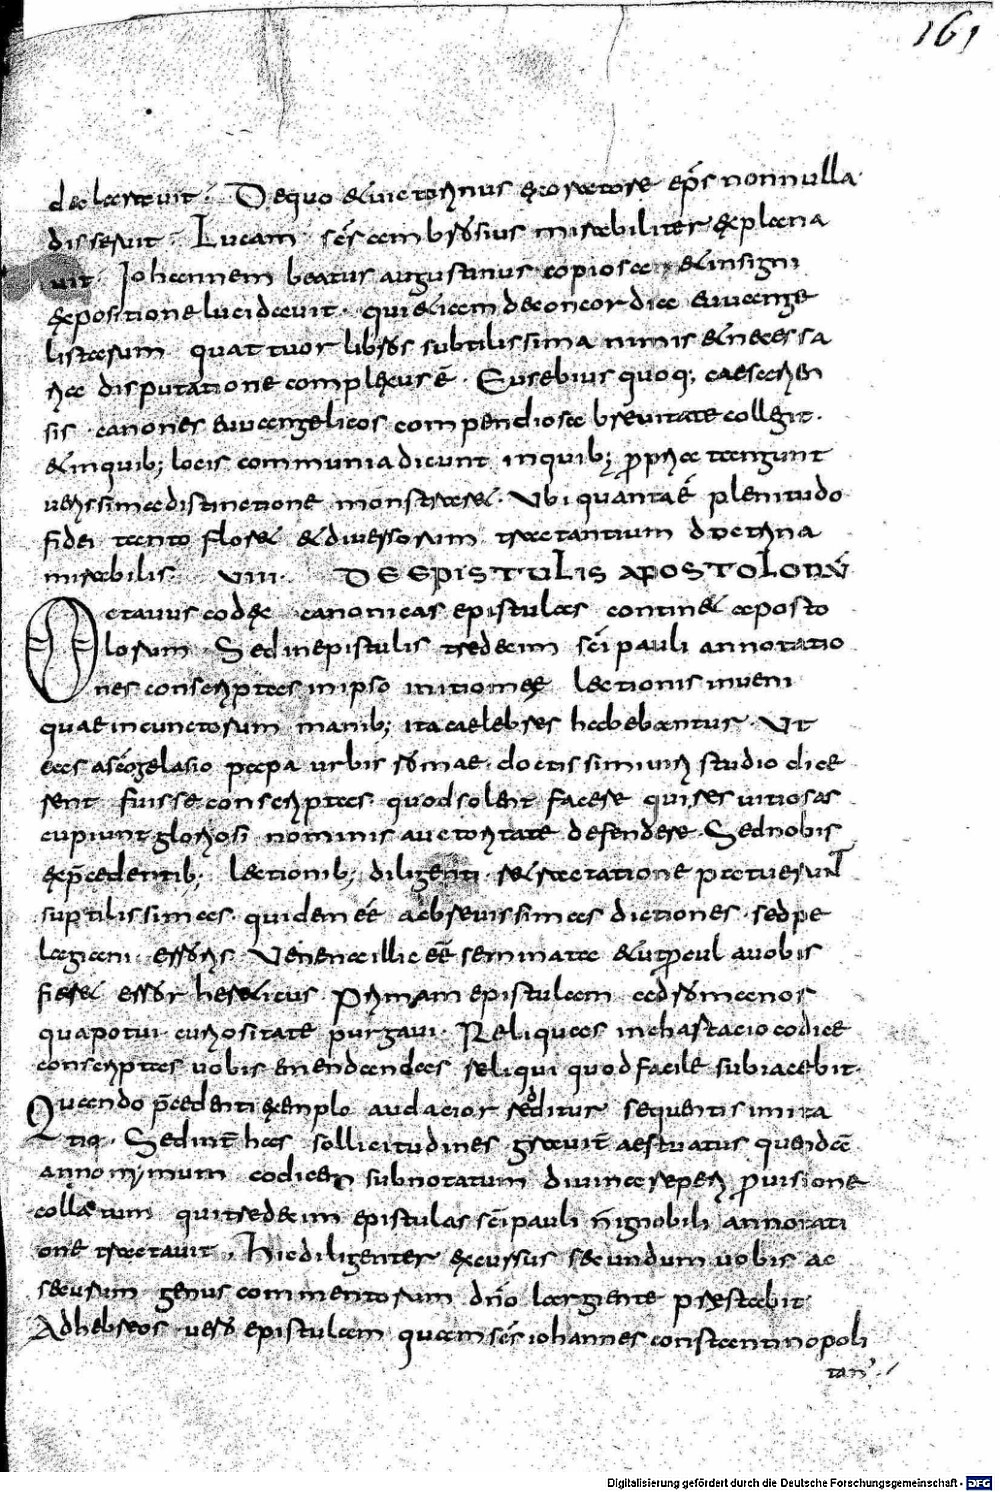 161
declaravit. De quo & victorinus ex oratore ep̄s nonnulla
disseruit. Lucam sc̄s ambrosius mirabiliter explana
vit. Iohannem beatus augustinus copiosa & insigni
expositione lucidavit. qui & iam de concordia euuange
listarum quattuor libros subtilissima nimis & necessa
ria disputatione complexus ē. Eusebius quoq; caesarien
sis canones euuangelicos compendiosa brevitate collegit.
& in quib; locis communia dicunt in quib; propria tangunt
verissima distinctione monstrar&. Ubi quanta ē plenitudo
fidei tanto flor& & diversorum tractantium doctrina
mirabilis. VIII. DE EPISTULIS APOSTOLORṼ
Octavus codex canonicas epistulas contin& aposto
lorum. Sed in epistulis tredecim sc̄i pauli annotatio
nes conscriptas in ipso initio meae lectionis inveni
quae in cunctorum manib; ita caelebres habebantur. Ut
eas a sc̄o gelasio papa urbis romae. doctissimi viri studio dice
rent fuisse conscriptas. quod solent facere qui res vitiosas
cupiunt gloriosi nominis auctoritate defendere. Sed nobis
ex p̄cedentib; lectionib; diligenti r&ractatione patuerunt
suptilissimas quidem eē ac brevissimas dictiones. sed pe
lagiani erroris venena illic eē seminata & ut procul a vobis
fier& error her&icus. Primam epistulam ad romanos
qua potui curiositate purgavi. Reliquas in chartacio codice
conscriptas vobis emendandas reliqui quod facile subiacebit.
Quando p̄cedenti exemplo audacior redditur sequentis imita
tio. Sed int̄ has sollicitudines gravit̄ aestuatus quendā
annonymum codicem subnotatum divina reperi provisione
collatum qui tredecim epistulas sc̄i pauli n̄ ignobili annotati
one tractavit. Hic diligenter excussus secundum vobis ac
securum genus commentorum dn̄o largiente praestabit.
Ad hebreos vero epistulam quam sc̄s iohannes constantinopoli
tan'
Digitalisierung gefördert durch die Deutsche Forschungsgemeinschaft - DFG